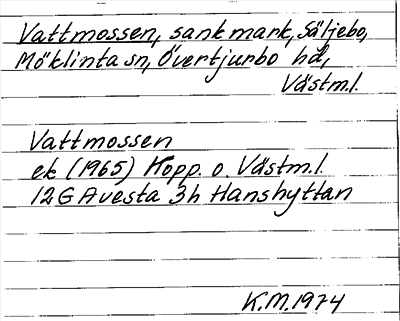 Vattmossen, sank mark, Säljebo,
Möklinta sn, Övertjurbo hd,
Västm.l.
Vattmossen
ek (1965) Kopp. o. Västm.l.
12G Avesta 3h Hanshyttan
K.M. 1974